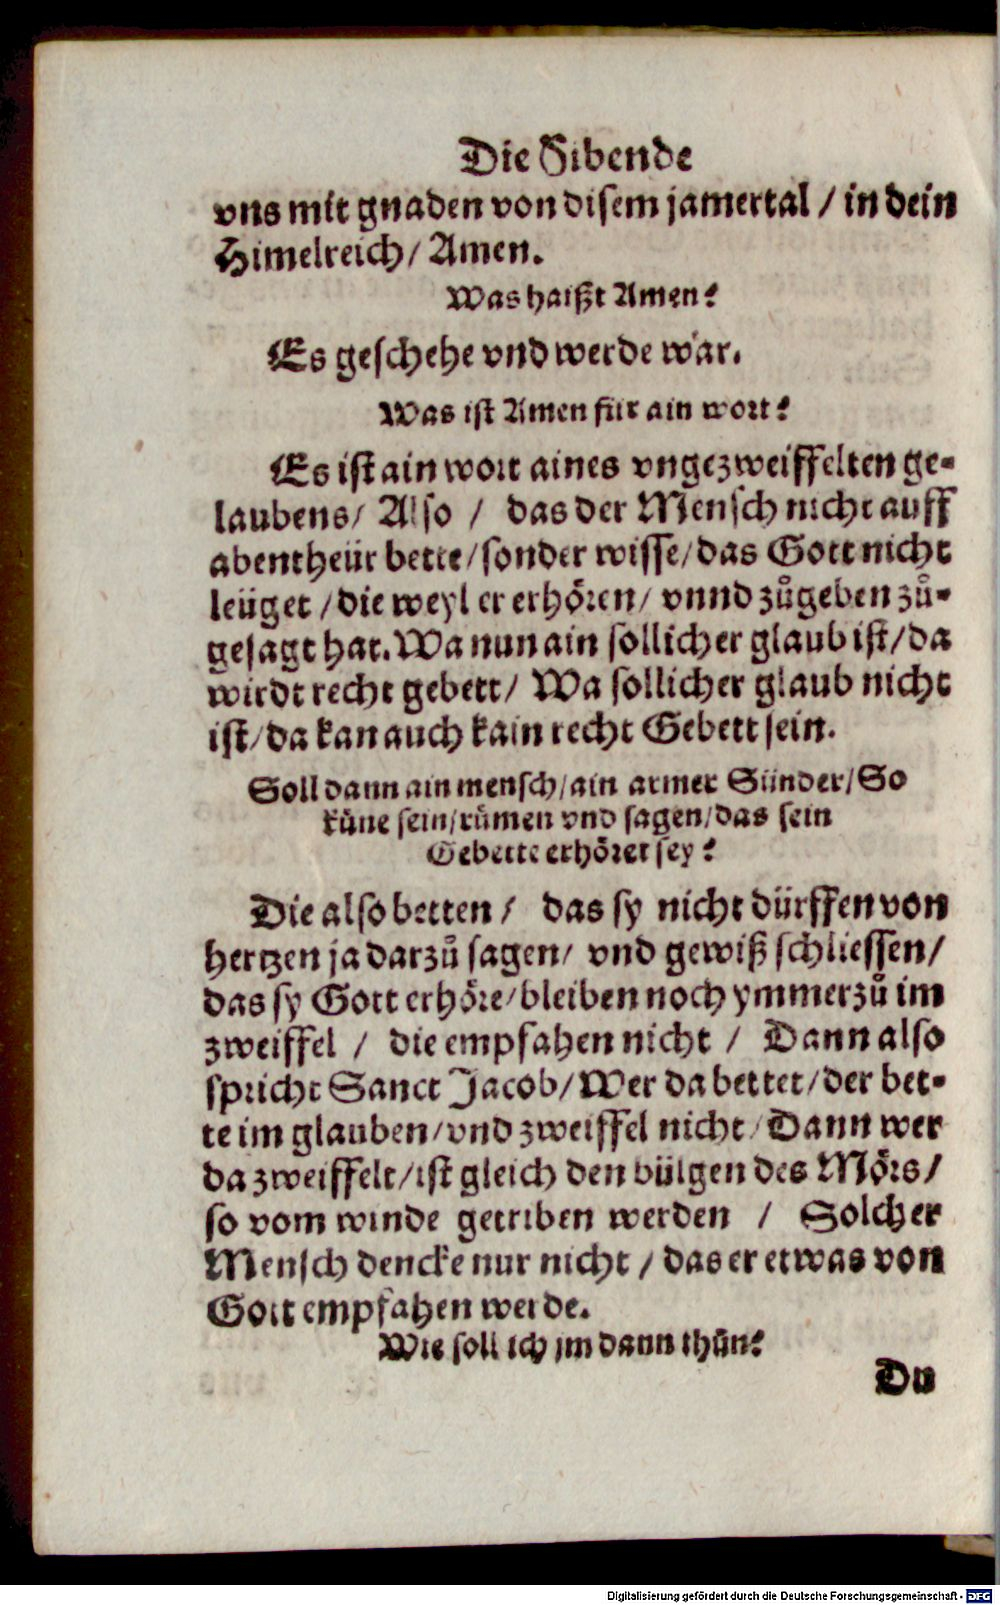 Die Sibende
vns mit gnaden von disem jamertal / in dein
Himelreich / Amen.
Was haißt Amen?
Es geschehe vnd werde war.
Was ist Amen für ain wort?
Es ist ain wort aines vngezweiffelten ge-
laubens / Also / das der Mensch nicht auff
abentheür bette / sonder wisse / das Gott nicht
leüget / die weyl er erhören / vnnd zůgeben zů-
gesagt hat. Wa nun ain sollicher glaub ist / da
wirdt recht gebett / Wa sollicher glaub nicht
ist / da kan auch kain recht Gebett sein.
Soll dann ain mensch / ain armer Sünder / So
küne sein / rümen vnd sagen / das sein
Gebette erhöret sey?
Die also betten / das sy nicht dürffen von
hertzen ja darzů sagen / vnd gewiß schliessen /
das sy Gott erhöre / bleiben noch ymmerzů im
zweiffel / die empfahen nicht / Dann also
spricht Sanct Jacob / Wer da bettet / der bet-
te im glauben / vnd zweiffel nicht / Dann wer
da zweiffelt / ist gleich den bülgen des Mörs /
so vom winde getriben werden / Solcher
Mensch dencke nur nicht / das er etwas von
Gott empfahen werde.
Wie soll ich jm dann thůn?
Du
Digitalisierung gefördert durch die Deutsche Forschungsgemeinschaft - DFG